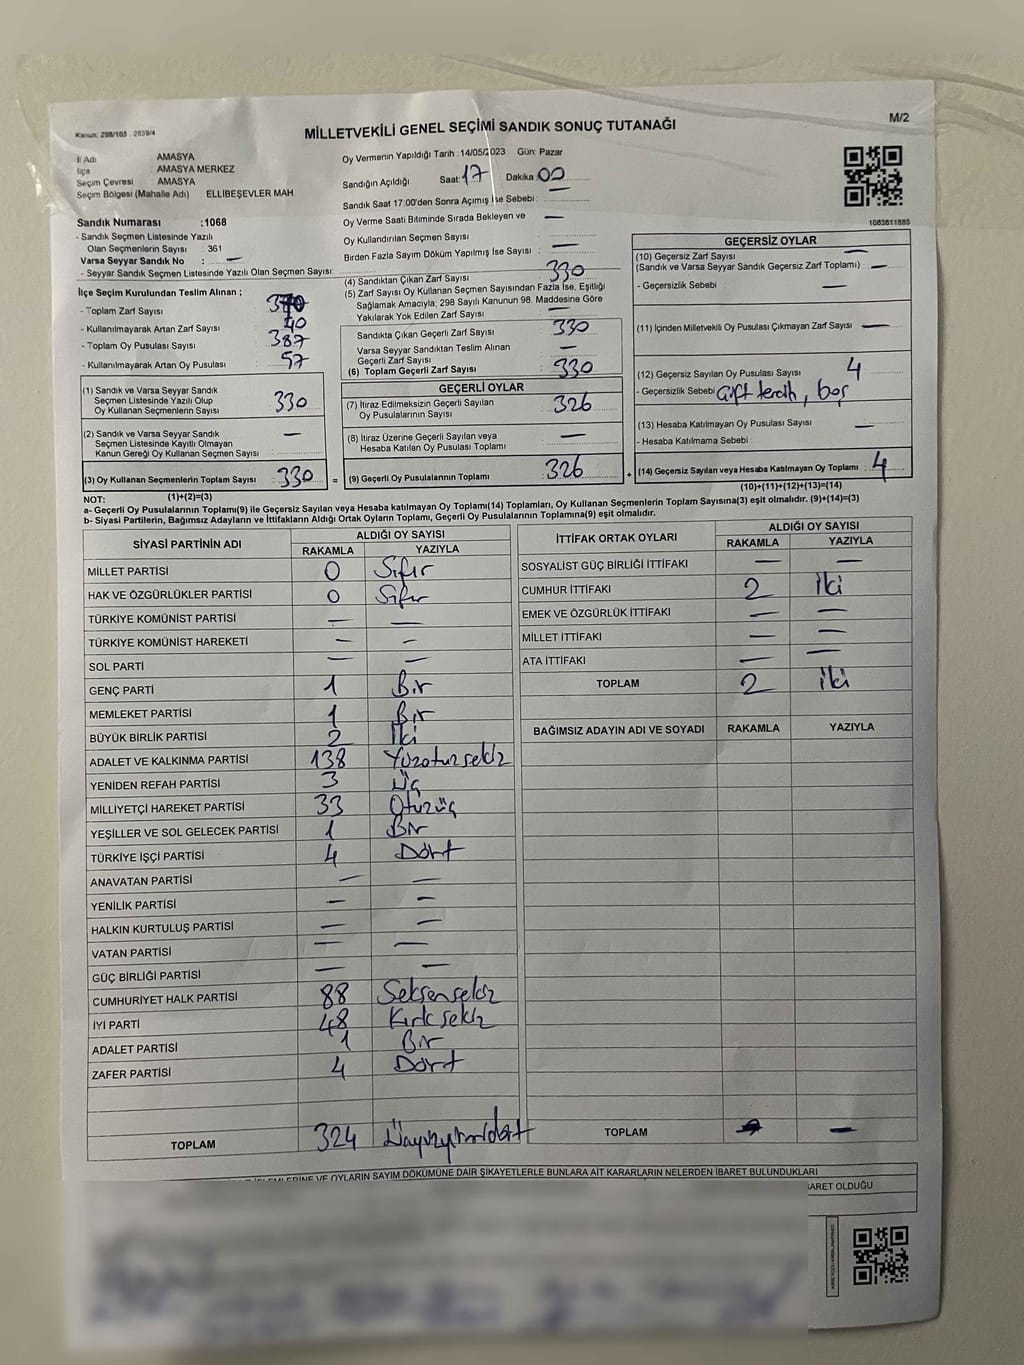 Kanun: 298/103 : 2839/4
MİLLETVEKİLİ GENEL SEÇİMİ SANDIK SONUÇ TUTANAĞI
M/2
İl Adı : AMASYA
İlçe : AMASYA MERKEZ
Seçim Çevresi : AMASYA
Seçim Bölgesi (Mahalle Adı) ELLİBEŞEVLER MAH.
Sandık Numarası :1068
- Sandık Seçmen Listesinde Yazılı
Olan Seçmenlerin Sayısı : 361
Varsa Seyyar Sandık No : —
- Seyyar Sandık Seçmen Listesinde Yazılı Olan Seçmen Sayısı:
Oy Vermenin Yapıldığı Tarih :14/05/2023 Gün: Pazar
Sandığın Açıldığı Saat: 17 Dakika: 00
Sandık Saat 17:00'den Sonra Açımış İse Sebebi : —
Oy Verme Saati Bitiminde Sırada Bekleyen ve —
Oy Kullandırılan Seçmen Sayısı
Birden Fazla Sayım Döküm Yapılmış İse Sayısı : —
1083811885
İlçe Seçim Kurulundan Teslim Alınan ;
- Toplam Zarf Sayısı : 370
- Kullanılmayarak Artan Zarf Sayısı : 40
- Toplam Oy Pusulası Sayısı : 387
- Kullanılmayarak Artan Oy Pusulası : 57
(1) Sandık ve Varsa Seyyar Sandık
Seçmen Listesinde Yazılı Olup
Oy Kullanan Seçmenlerin Sayısı : 330
(2) Sandık ve Varsa Seyyar Sandık
Seçmen Listesinde Kayıtlı Olmayan
Kanun Gereği Oy Kullanan Seçmen Sayısı : —
(3) Oy Kullanan Seçmenlerin Toplam Sayısı : 330 =
(4) Sandıktan Çıkan Zarf Sayısı : 330
(5) Zarf Sayısı Oy Kullanan Seçmen Sayısından Fazla İse, Eşitliği
Sağlamak Amacıyla; 298 Sayılı Kanunun 98. Maddesine Göre
Yakılarak Yok Edilen Zarf Sayısı : —
Sandıkta Çıkan Geçerli Zarf Sayısı : 330
Varsa Seyyar Sandıktan Teslim Alınan
Geçerli Zarf Sayısı : —
(6) Toplam Geçerli Zarf Sayısı : 330
GEÇERLİ OYLAR
(7) İtiraz Edilmeksizin Geçerli Sayılan
Oy Pusulalarının Sayısı : 326
(8) İtiraz Üzerine Geçerli Sayılan veya
Hesaba Katılan Oy Pusulası Toplamı : —
(9) Geçerli Oy Pusulalarının Toplamı : 326 +
GEÇERSİZ OYLAR
(10) Geçersiz Zarf Sayısı : —
(Sandık ve Varsa Seyyar Sandık Geçersiz Zarf Toplamı) : —
- Geçersizlik Sebebi : —
(11) İçinden Milletvekili Oy Pusulası Çıkmayan Zarf Sayısı : —
(12) Geçersiz Sayılan Oy Pusulası Sayısı : 4
- Geçersizlik Sebebi : Çift tercih, boş
(13) Hesaba Katılmayan Oy Pusulası Sayısı : —
- Hesaba Katılmama Sebebi :
(14) Geçersiz Sayılan veya Hesaba Katılmayan Oy Toplamı : 4
NOT: (1)+(2)=(3)
(10)+(11)+(12)+(13)=(14)
a- Geçerli Oy Pusulalarının Toplamı(9) ile Geçersiz Sayılan veya Hesaba katılmayan Oy Toplamı(14) Toplamları, Oy Kullanan Seçmenlerin Toplam Sayısına(3) eşit olmalıdır. (9)+(14)=(3)
b- Siyasi Partilerin, Bağımsız Adayların ve İttifakların Aldığı Ortak Oyların Toplamı, Geçerli Oy Pusulalarının Toplamına(9) eşit olmalıdır.
SİYASİ PARTİNİN ADI ALDIĞI OY SAYISI
RAKAMLA YAZIYLA
MİLLET PARTİSİ 0 Sıfır
HAK VE ÖZGÜRLÜKLER PARTİSİ 0 Sıfır
TÜRKİYE KOMÜNİST PARTİSİ — —
TÜRKİYE KOMÜNİST HAREKETİ — —
SOL PARTİ — —
GENÇ PARTİ 1 Bir
MEMLEKET PARTİSİ 1 Bir
BÜYÜK BİRLİK PARTİSİ 2 İki
ADALET VE KALKINMA PARTİSİ 138 Yüzotuzsekiz
YENİDEN REFAH PARTİSİ 3 Üç
MİLLİYETÇİ HAREKET PARTİSİ 33 Otuzüç
YEŞİLLER VE SOL GELECEK PARTİSİ 1 Bir
TÜRKİYE İŞÇİ PARTİSİ 4 Dört
ANAVATAN PARTİSİ — —
YENİLİK PARTİSİ — —
HALKIN KURTULUŞ PARTİSİ — —
VATAN PARTİSİ — —
GÜÇ BİRLİĞİ PARTİSİ — —
CUMHURİYET HALK PARTİSİ 88 Seksensekiz
İYİ PARTİ 48 Kırksekiz
ADALET PARTİSİ 1 Bir
ZAFER PARTİSİ 4 Dört
TOPLAM 324 Üçyüzyirmidört
İTTİFAK ORTAK OYLARI ALDIĞI OY SAYISI
RAKAMLA YAZIYLA
SOSYALİST GÜÇ BİRLİĞİ İTTİFAKI — —
CUMHUR İTTİFAKI 2 İki
EMEK VE ÖZGÜRLÜK İTTİFAKI — —
MİLLET İTTİFAKI — —
ATA İTTİFAKI — —
TOPLAM 2 İki
BAĞIMSIZ ADAYIN ADI VE SOYADI RAKAMLA YAZIYLA
TOPLAM — —
VE OYLARIN SAYIM DÖKÜMÜNE DAİR ŞİKAYETLERLE BUNLARA AİT KARARLARIN NELERDEN İBARET BULUNDUKLARI
OLDUĞU